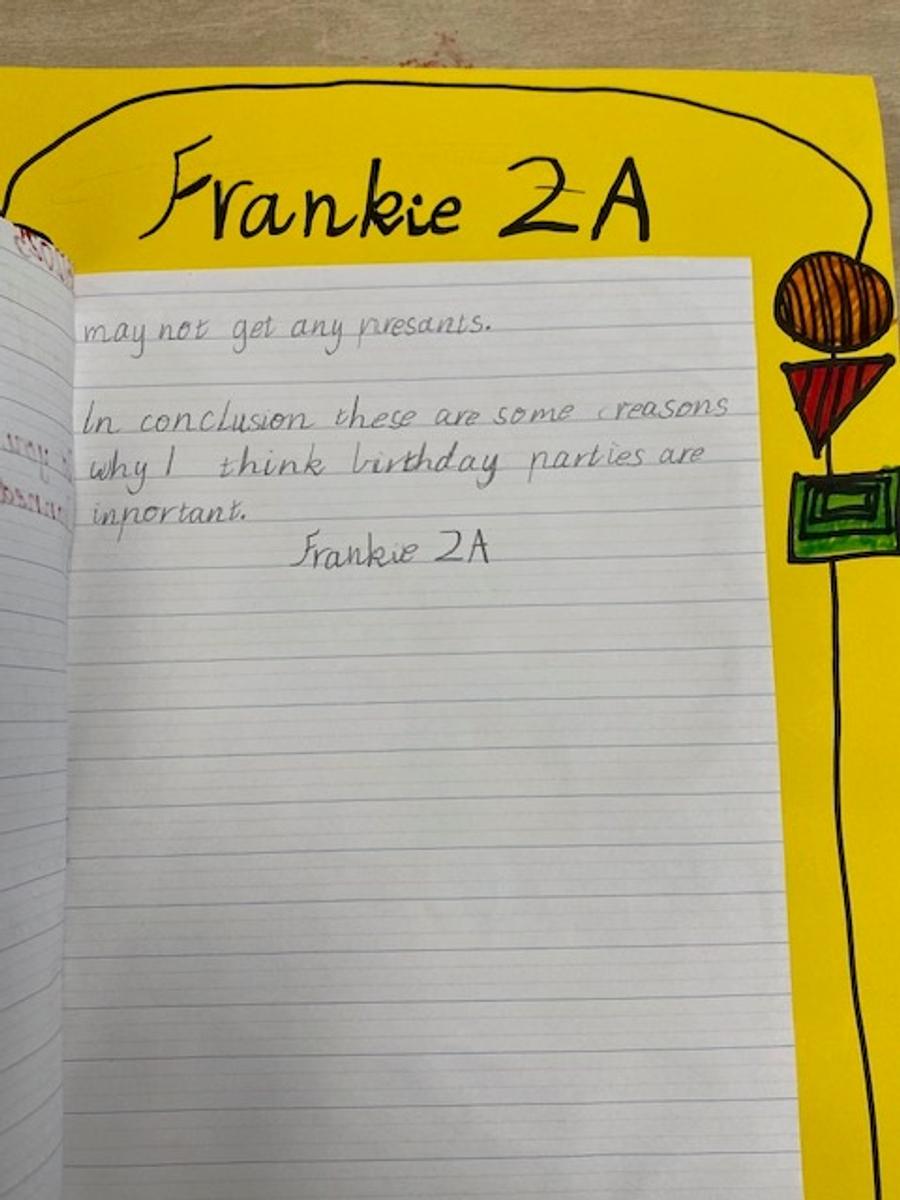 Frankie 2A
may not get any presants.
In conclusion these are some reasons
why I think birthday parties are
inportant.
Frankie 2A